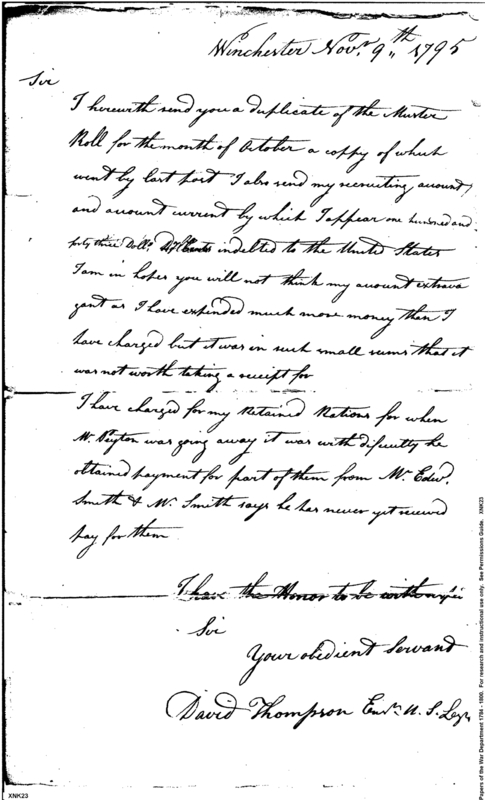 Winchester Novr. 9th 1795
Sir
I herewith send you a duplicate of the Muster
Roll for the month of October a coppy of which
went by last post I also send my recruiting account,
and account current by which I appear one hundred and
forty three Dolls. indebted to the United States
I am in hopes you will not think my account extrava
gant as I have expended much more money than I
have charged but it was in such small sums that it
was not worth taking a receipt for
I have charged for my Retained Rations for when
Mr. Peyton was going away it was with dificulty he
obtained payment for part of them from Mr. Edwd.
Smith & Mr. Smith says he has never yet received
pay for them
I have the Honor to be with
Sir
Your obedient Servant
David Thompson Ensn. U. S. Legn
Papers of the War Department 1784 - 1800. For research and instructional use only. See Permissions Guide. XNK23
XNK23